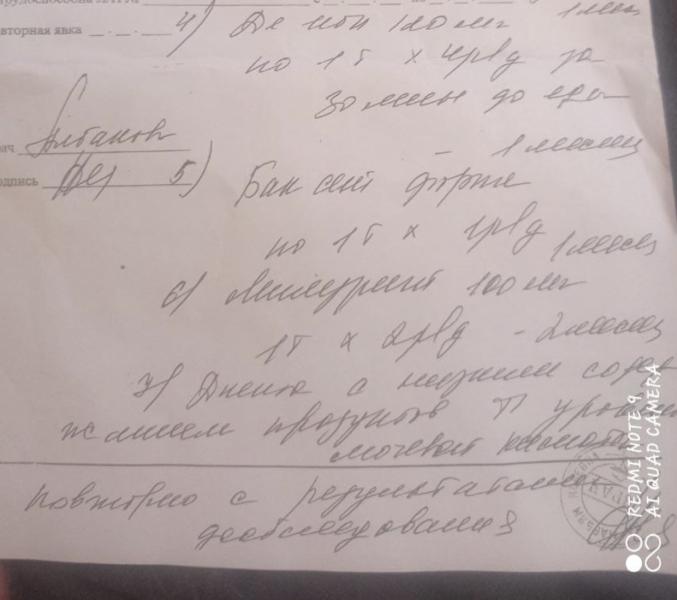 вторная явка
4) Де нол 120 мг 1 мес
по 1 т х 4р/д за
30 мин до еды
- 1 месяц
5) Бак сет форте
по 1т х 1р/д 1 месяц
6) 100 мг
1т х 2р/д - 2 месяц
7) Диета с низким содер
жанием продуктов ↑ уровень
мочевой кислоты
повторно с результатами
дообследования
REDMI NOTE 9
AI QUAD CAMERA